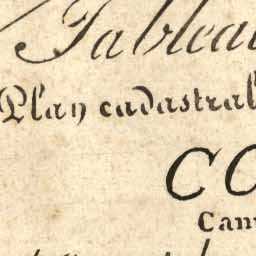 Tablea
Plan cadastral
CO
Can